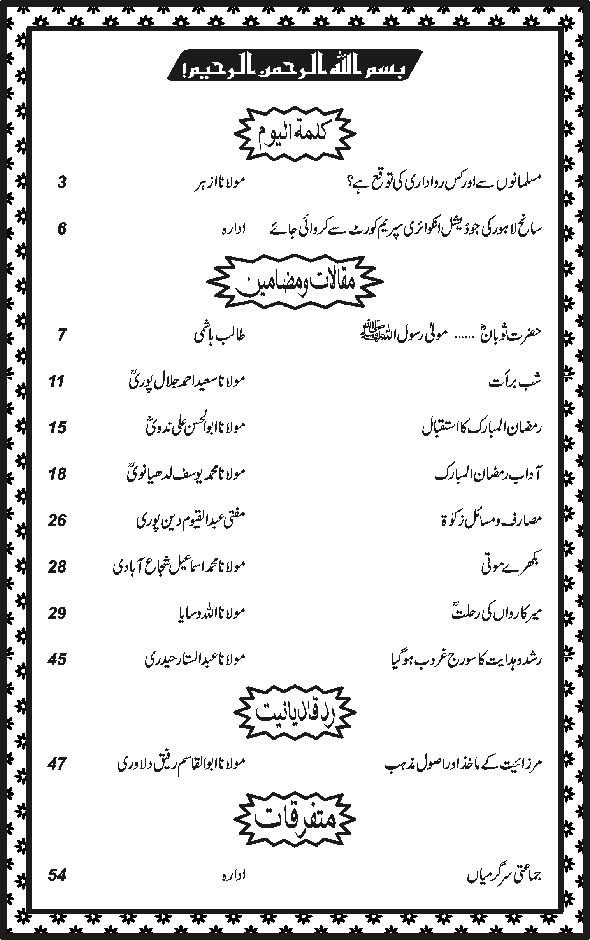 بسم اللہ الرحمن الرحیم!
کلمۃ الیوم
مسلمانوں سے اور کس رواداری کی توقع ہے؟ مولانا ازہر 3
سانحہ لاہور کی جوڈیشل انکوائری سپریم کورٹ سے کروائی جائے ادارہ 6
مقالات و مضامین
حضرت ثوبانؓ ...... مولیٰ رسول اللہ ﷺ طالب ہاشمی 7
شب برأت مولانا سعید احمد جلال پوریؒ 11
رمضان المبارک کا استقبال مولانا ابوالحسن علی ندویؒ 15
آداب رمضان المبارک مولانا محمد یوسف لدھیانویؒ 18
مصارف و مسائل زکوٰۃ مفتی عبدالقیوم دین پوری 26
بکھرے موتی مولانا محمد اسماعیل شجاع آبادی 28
میر کارواں کی رحلتؒ مولانا اللہ وسایا 29
رشد و ہدایت کا سورج غروب ہوگیا مولانا عبدالستار حیدری 45
رد قادیانیت
مرزائیت کے ماخذ اور اصول مذہب مولانا ابوالقاسم رفیق دلاوری 47
متفرقات
جماعتی سرگرمیاں ادارہ 54